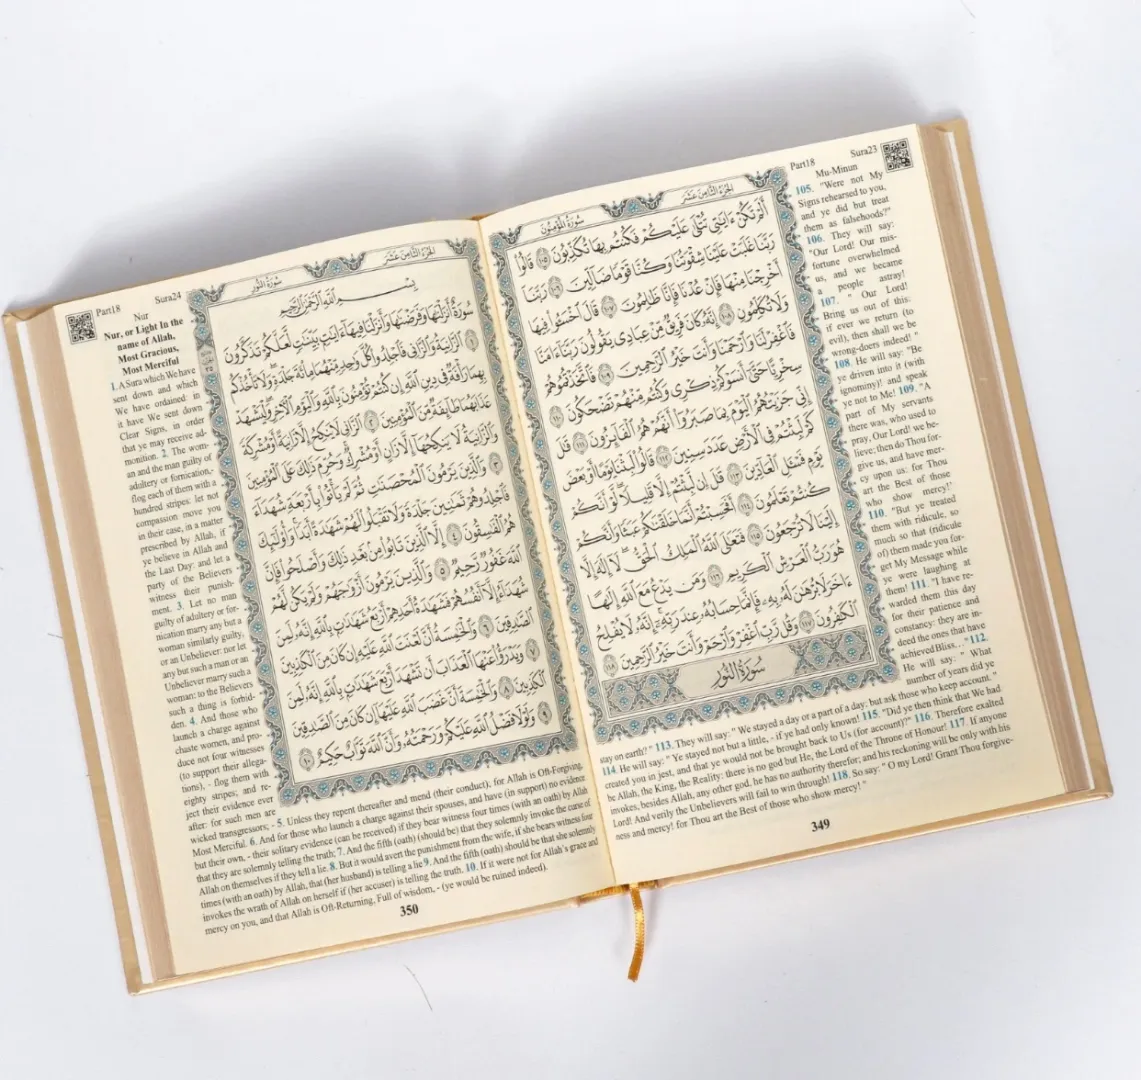 Part18 Sura23
Mu-Minun
سُورَةُ المُؤْمِنُونَ الجُزْءُ الثَّامِنَ عَشَرَ
أَلَمْ تَكُنْ ءَايَٰتِى تُتْلَىٰ عَلَيْكُمْ فَكُنتُم بِهَا تُكَذِّبُونَ ١٠٥ قَالُوا۟
رَبَّنَا غَلَبَتْ عَلَيْنَا شِقْوَتُنَا وَكُنَّا قَوْمًا ضَآلِّينَ ١٠٦ رَبَّنَآ
أَخْرِجْنَا مِنْهَا فَإِنْ عُدْنَا فَإِنَّا ظَٰلِمُونَ ١٠٧ قَالَ ٱخْسَـُٔوا۟ فِيهَا
وَلَا تُكَلِّمُونِ ١٠٨ إِنَّهُۥ كَانَ فَرِيقٌ مِّنْ عِبَادِى يَقُولُونَ رَبَّنَآ ءَامَنَّا
فَٱغْفِرْ لَنَا وَٱرْحَمْنَا وَأَنتَ خَيْرُ ٱلرَّٰحِمِينَ ١٠٩ فَٱتَّخَذْتُمُوهُمْ
سِخْرِيًّا حَتَّىٰٓ أَنسَوْكُمْ ذِكْرِى وَكُنتُم مِّنْهُمْ تَضْحَكُونَ ١١٠
إِنِّى جَزَيْتُهُمُ ٱلْيَوْمَ بِمَا صَبَرُوٓا۟ أَنَّهُمْ هُمُ ٱلْفَآئِزُونَ ١١١ قَٰلَ
كَمْ لَبِثْتُمْ فِى ٱلْأَرْضِ عَدَدَ سِنِينَ ١١٢ قَالُوا۟ لَبِثْنَا يَوْمًا أَوْ بَعْضَ
يَوْمٍ فَسْـَٔلِ ٱلْعَآدِّينَ ١١٣ قَٰلَ إِن لَّبِثْتُمْ إِلَّا قَلِيلًا لَّوْ أَنَّكُمْ
كُنتُمْ تَعْلَمُونَ ١١٤ أَفَحَسِبْتُمْ أَنَّمَا خَلَقْنَٰكُمْ عَبَثًا وَأَنَّكُمْ
إِلَيْنَا لَا تُرْجَعُونَ ١١٥ فَتَعَٰلَى ٱللَّهُ ٱلْمَلِكُ ٱلْحَقُّ لَآ إِلَٰهَ إِلَّا
هُوَ رَبُّ ٱلْعَرْشِ ٱلْكَرِيمِ ١١٦ وَمَن يَدْعُ مَعَ ٱللَّهِ إِلَٰهًا
ءَاخَرَ لَا بُرْهَٰنَ لَهُۥ بِهِۦ فَإِنَّمَا حِسَابُهُۥ عِندَ رَبِّهِۦٓ إِنَّهُۥ لَا يُفْلِحُ
ٱلْكَٰفِرُونَ ١١٧ وَقُل رَّبِّ ٱغْفِرْ وَٱرْحَمْ وَأَنتَ خَيْرُ ٱلرَّٰحِمِينَ ١١٨
سُورَةُ النُّورِ
105. "Were not My
Signs rehearsed to you,
and ye did but treat
them as falsehoods?"
106. They will say:
"Our Lord! Our mis-
fortune overwhelmed
us, and we became
a people astray!
107. " Our Lord!
Bring us out of this:
if ever we return (to
evil), then shall we be
wrong-doers indeed!"
108. He will say: "Be
ye driven into it (with
ignominy)! and speak
ye not to Me! 109. "A
part of My servants
there was, who used to
pray, Our Lord! we be-
lieve; then do Thou for-
give us, and have mer-
cy upon us: for Thou
art the Best of those
who show mercy!"
110. "But ye treated
them with ridicule, so
much so that (ridicule
of) them made you for-
get My Message while
ye were laughing at
them! 111. "I have re-
warded them this day
for their patience and
constancy: they are in-
deed the ones that have
achieved Bliss…" 112.
He will say: " What
number of years did ye
stay on earth? " 113. They will say: " We stayed a day or a part of a day: but ask those who keep account. "
114. He will say: " Ye stayed not but a little, - if ye had only known! 115. "Did ye then think that We had
created you in jest, and that ye would not be brought back to Us (for account)?" 116. Therefore exalted
be Allah, the King, the Reality: there is no god but He, the Lord of the Throne of Honour! 117. If anyone
invokes, besides Allah, any other god, he has no authority therefor; and his reckoning will be only with his
Lord! And verily the Unbelievers will fail to win through! 118. So say: " O my Lord! Grant Thou forgive-
ness and mercy! for Thou art the Best of those who show mercy! "
349
Part18 Sura24
Nur
سُورَةُ النُّورِ الجُزْءُ الثَّامِنَ عَشَرَ
بِسْمِ ٱللَّهِ ٱلرَّحْمَٰنِ ٱلرَّحِيمِ
سُورَةٌ أَنزَلْنَٰهَا وَفَرَضْنَٰهَا وَأَنزَلْنَا فِيهَآ ءَايَٰتٍۭ بَيِّنَٰتٍ لَّعَلَّكُمْ تَذَكَّرُونَ
١ ٱلزَّانِيَةُ وَٱلزَّانِى فَٱجْلِدُوا۟ كُلَّ وَٰحِدٍ مِّنْهُمَا مِا۟ئَةَ جَلْدَةٍ وَلَا تَأْخُذْكُم
بِهِمَا رَأْفَةٌ فِى دِينِ ٱللَّهِ إِن كُنتُمْ تُؤْمِنُونَ بِٱللَّهِ وَٱلْيَوْمِ ٱلْءَاخِرِ وَلْيَشْهَدْ
عَذَابَهُمَا طَآئِفَةٌ مِّنَ ٱلْمُؤْمِنِينَ ٢ ٱلزَّانِى لَا يَنكِحُ إِلَّا زَانِيَةً أَوْ مُشْرِكَةً
وَٱلزَّانِيَةُ لَا يَنكِحُهَآ إِلَّا زَانٍ أَوْ مُشْرِكٌ وَحُرِّمَ ذَٰلِكَ عَلَى ٱلْمُؤْمِنِينَ
٣ وَٱلَّذِينَ يَرْمُونَ ٱلْمُحْصَنَٰتِ ثُمَّ لَمْ يَأْتُوا۟ بِأَرْبَعَةِ شُهَدَآءَ
فَٱجْلِدُوهُمْ ثَمَٰنِينَ جَلْدَةً وَلَا تَقْبَلُوا۟ لَهُمْ شَهَٰدَةً أَبَدًا وَأُو۟لَٰٓئِكَ
هُمُ ٱلْفَٰسِقُونَ ٤ إِلَّا ٱلَّذِينَ تَابُوا۟ مِنۢ بَعْدِ ذَٰلِكَ وَأَصْلَحُوا۟ فَإِنَّ
ٱللَّهَ غَفُورٌ رَّحِيمٌ ٥ وَٱلَّذِينَ يَرْمُونَ أَزْوَٰجَهُمْ وَلَمْ يَكُن لَّهُمْ
شُهَدَآءُ إِلَّآ أَنفُسُهُمْ فَشَهَٰدَةُ أَحَدِهِمْ أَرْبَعُ شَهَٰدَٰتٍۭ بِٱللَّهِ إِنَّهُۥ لَمِنَ
ٱلصَّٰدِقِينَ ٦ وَٱلْخَٰمِسَةُ أَنَّ لَعْنَتَ ٱللَّهِ عَلَيْهِ إِن كَانَ مِنَ ٱلْكَٰذِبِينَ
٧ وَيَدْرَؤُا۟ عَنْهَا ٱلْعَذَابَ أَن تَشْهَدَ أَرْبَعَ شَهَٰدَٰتٍۭ بِٱللَّهِ إِنَّهُۥ لَمِنَ
ٱلْكَٰذِبِينَ ٨ وَٱلْخَٰمِسَةَ أَنَّ غَضَبَ ٱللَّهِ عَلَيْهَآ إِن كَانَ مِنَ ٱلصَّٰدِقِينَ
٩ وَلَوْلَا فَضْلُ ٱللَّهِ عَلَيْكُمْ وَرَحْمَتُهُۥ وَأَنَّ ٱللَّهَ تَوَّابٌ حَكِيمٌ ١٠
Nur, or Light In the
name of Allah,
Most Gracious,
Most Merciful
1. A Sura which We have
sent down and which
We have ordained: in
it have We sent down
Clear Signs, in order
that ye may receive ad-
monition. 2. The wom-
an and the man guilty of
adultery or fornication,-
flog each of them with a
hundred stripes: let not
compassion move you
in their case, in a matter
prescribed by Allah, if
ye believe in Allah and
the Last Day: and let a
party of the Believers
witness their punish-
ment. 3. Let no man
guilty of adultery or for-
nication marry any but a
woman similarly guilty,
or an Unbeliever: nor let
any but such a man or an
Unbeliever marry such a
woman: to the Believers
such a thing is forbid-
den. 4. And those who
launch a charge against
chaste women, and pro-
duce not four witnesses
(to support their allega-
tions), - flog them with
eighty stripes; and re-
ject their evidence ever
after: for such men are
wicked transgressors; - 5. Unless they repent thereafter and mend (their conduct); for Allah is Oft-Forgiving,
Most Merciful. 6. And for those who launch a charge against their spouses, and have (in support) no evidence
but their own, - their solitary evidence (can be received) if they bear witness four times (with an oath) by Allah
that they are solemnly telling the truth; 7. And the fifth (oath) (should be) that they solemnly invoke the curse of
Allah on themselves if they tell a lie. 8. But it would avert the punishment from the wife, if she bears witness four
times (with an oath) by Allah, that (her husband) is telling a lie 9. And the fifth (oath) should be that she solemnly
invokes the wrath of Allah on herself if (her accuser) is telling the truth. 10. If it were not for Allah's grace and
mercy on you, and that Allah is Oft-Returning, Full of wisdom, - (ye would be ruined indeed).
350